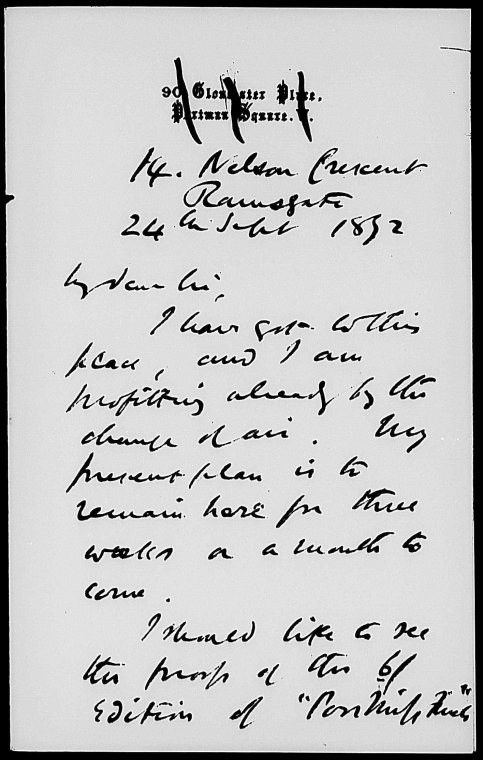 90 Gloucester Place,
Portman Square. W.
14. Nelson Crescent
Ramsgate
24th Sept 1872
My dear Sir,
I have got to this
place, and I am
profitting already by the
change of air. My
present plan is to
remain here for three
weeks or a month to
come.
I should like to see
the proofs of the 6/
Edition of "Poor Miss Finch"